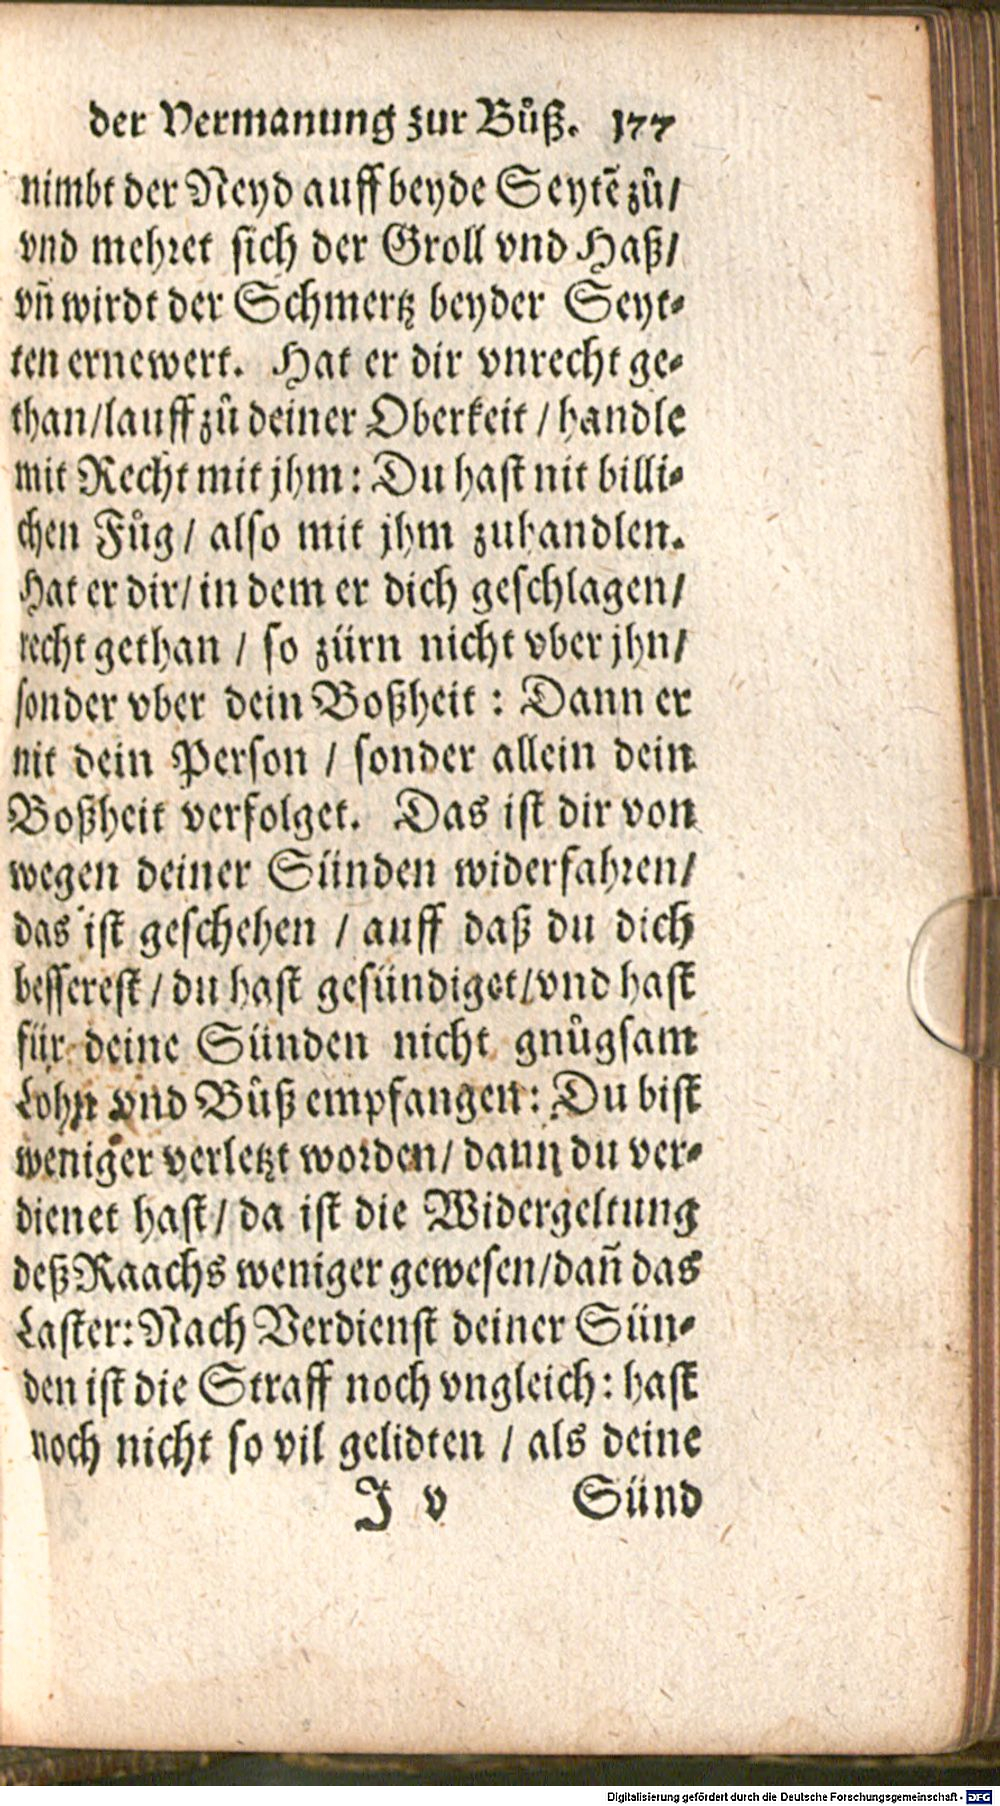 der Vermanung zur Buͦß. 177
nimbt der Neyd auff beyde Seytẽ zuͦ/
vnd mehret sich der Groll vnd Haß/
vñ wirdt der Schmertz beyder Seyt-
ten ernewert. Hat er dir vnrecht ge-
than/lauff zuͦ deiner Oberkeit / handle
mit Recht mit jhm: Du hast nit billi-
chen Fuͦg / also mit jhm zuhandlen.
Hat er dir/ in dem er dich geschlagen/
recht gethan / so zürn nicht vber jhn/
sonder vber dein Boßheit : Dann er
nit dein Person / sonder allein dein
Boßheit verfolget. Das ist dir von
wegen deiner Sünden widerfahren/
das ist geschehen / auff daß du dich
besserest / du hast gesündiget/ vnd hast
für deine Sünden nicht gnuͦgsam
Lohn vnd Buͦß empfangen: Du bist
weniger verletzt worden/ dann du ver-
dienet hast/ da ist die Widergeltung
deß Raachs weniger gewesen/dañ das
Laster: Nach Verdienst deiner Sün-
den ist die Straff noch vngleich: hast
noch nicht so vil gelidten / als deine
J v Sünd
Digitalisierung gefördert durch die Deutsche Forschungsgemeinschaft - DFG